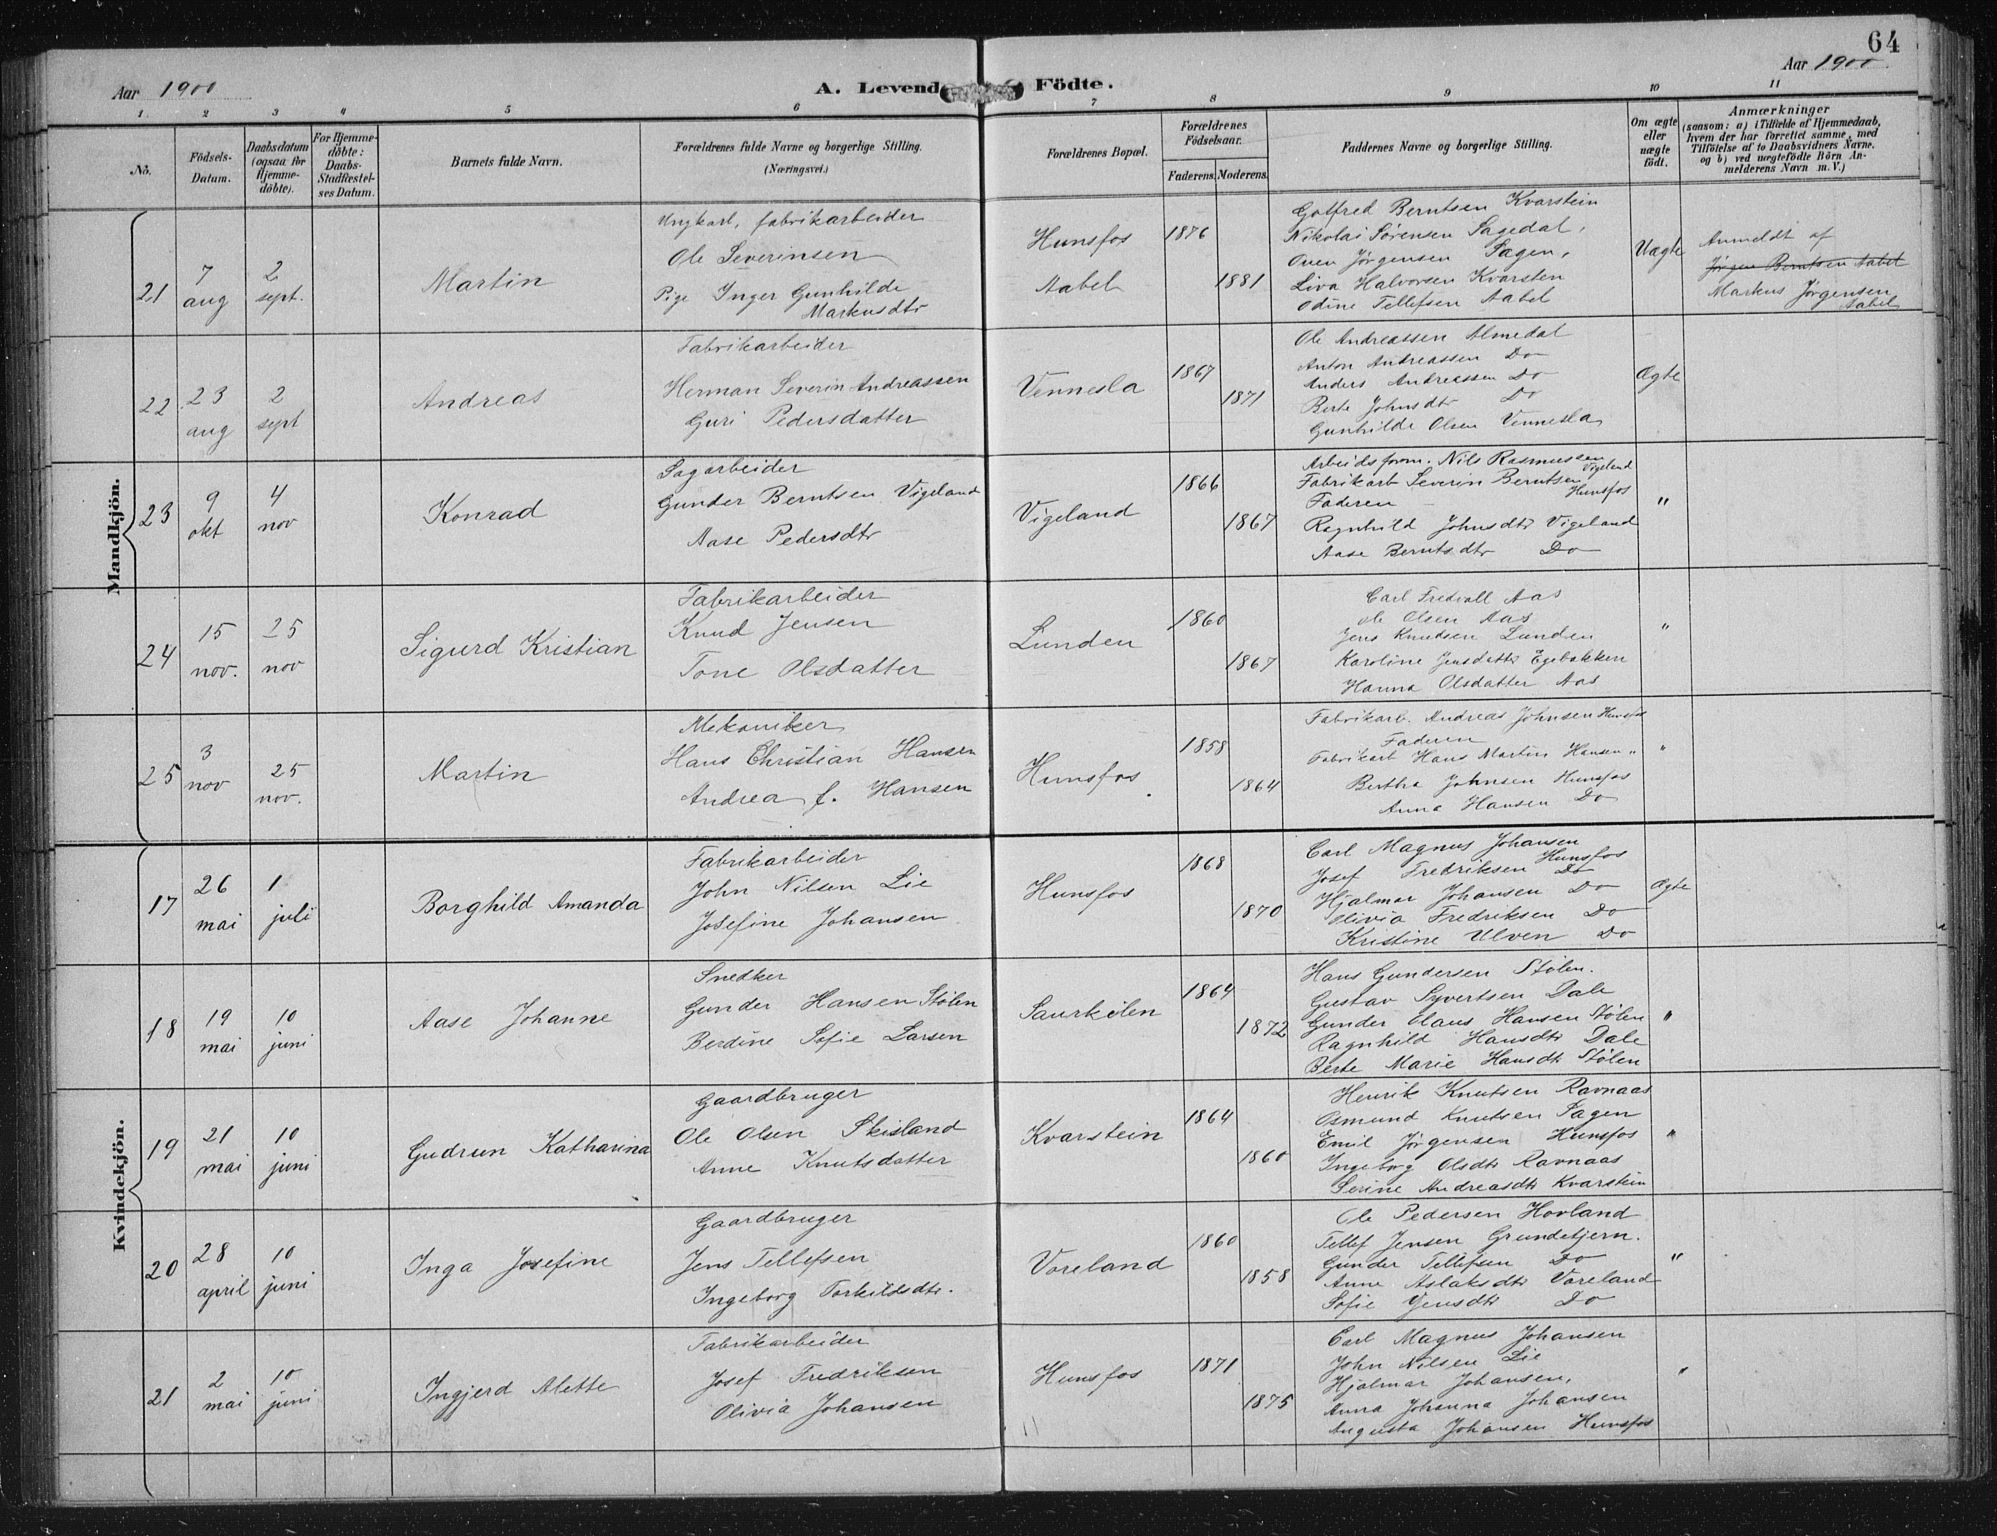 64
Aar 1900 A. Levende Födte. Aar 1900
1. 2 3 4 5 6 7 8 9 10 11
No.
Födsels-Datum.
Daabsdatum (ogsaa for Hjemme-döbte).
For Hjemme-döbte: Daabs-Stadfæstel-ses Datum.
Barnets fulde Navn.
Forældrenes fulde Navne og borgerlige Stilling. (Næringsvei.)
Forældrenes Bopæl.
Forældrenes Födselsaar.
Faderens. Moderens.
Faddernes Navne og borgerlige Stilling.
Om ægte eller uægte födt.
Anmærkninger
(saasom: a) i Tilfælde af Hjemmedaab, hvem der har forrettet samme, med Tilföielse af to Daabsvidners Navne, og b) ved uægtefödte Börn Anmelderens Navn m. V.)
Mandkjön.
21
7 aug
2 sept.
Martin
Ungkarl, fabrikarbeider
Ole Severinsen
Pige Inger Gunhilde
Markusdtr
Hunsfos
Aabel
1876
1881
Gotfred Berntsen Kvarstein
Nikolai Sørensen Sagedal,
Oven Jørgensen Sagen,
Liva Halvorsen Kvarsten
Odine Tellefsen Aabel
Uægte
Anmeldt af
Jørgen Berntsen Aabel
Markus Jørgensen
Aabel
22
23 aug
2 sept
Andreas
Fabrikarbeider
Herman Severin Andreassen
Guri Pedersdatter
Vennesla
1867
1871
Ole Andreassen Almedal
Anton Andreassen Do
Anders Andreassen Do
Berte Johnsdtr Do
Gunhilde Olsen Vennesla
Ægte
23
9 okt
4 nov
Konrad
Sagarbeider
Gunder Berntsen Vigeland
Aase Pedersdtr
Vigeland
1866
1867
Arbeidsform. Nils Rasmussen
Vigeland
Fabrikarb Severin Berntsen
Hunsfos
Faderen
Ragnhild Johnsdtr Vigeland
Aase Berntsdtr Do
"
24
15 nov.
25 nov
Sigurd Kristian
Fabrikarbeider
Knud Jensen
Tone Olsdatter
Lunden
1860
1867
Carl Fredvall Aas
Ole Olsen Aas
Jens Knudsen Lunden
Karoline Jensdattr Egebakken
Hanna Olsdatter Aas
"
25
3 nov
25 nov.
Martin
Mekaniker
Hans Christian Hansen
Andrea f. Hansen
Hunsfos
1858
1864
Fabrikarb. Andreas Johnsen Hunsfos
Faderen
Fabrikarb Hans Martin Hansen "
Bertha Johnsen Hunsfos
Anna Hansen Do
"
Kvindekjön.
17
26 mai
1 juli
Borghild Amanda
Fabrikarbeider
John Nilsen Lie
Josefine Johansen
Hunsfos
1868
1870
Carl Magnus Johansen
Hunsfos
Josef Fredriksen Do
Hjalmar Johansen Do
Olivia Fredriksen Do
Kristine Ulven Do
Ægte
18
19 mai
10 juni
Aase Johanne
Snedker
Gunder Hansen Stølen
Berdine Sofie Larsen
Saurkilen
1864
1872
Hans Gundersen Stølen.
Gustav Syvertsen Dale
Gunder Olaus Hansen Stølen
Ragnhild Hansdtr Dale
Berte Marie Hansdtr Stølen
"
19
21 mai
10 juni
Gudrun Katharina
Gaardbruger
Ole Olsen Skisland
Anne Knutsdatter
Kvarstein
1864
1860
Henrik Knutsen Ravnaas
Osmund Knutsen Sagen
Emil Jørgensen Hunsfos
Ingeborg Olsdtr Ravnaas
Serine Andreasdtr Kvarstein
"
20
28 april
10 juni
Inga Josefine
Gaardbruger
Jens Tellefsen
Ingeborg Torkildsdtr.
Voreland
1860
1858
Ole Pedersen Hovland
Tellef Jensen Grundetjern.
Gunder Tellefsen Do
Anne Aslaksdtr Voreland
Sofie Jensdtr Do
"
21
2 mai
10 juni
Ingjerd Alette
Fabrikarbeider
Josef Fredriksen
Olivia Johansen
Hunsfos
1871
1875
Carl Magnus Johansen
John Nilsen Lie
Hjalmar Johansen,
Anna Johanna Johansen
Augusta Johansen Hunsfos
"